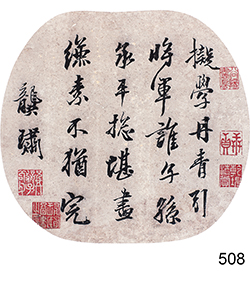 擬學丹青引
將軍誰子孫
承平摠堪畫
縑素不猶完
龔璛
508